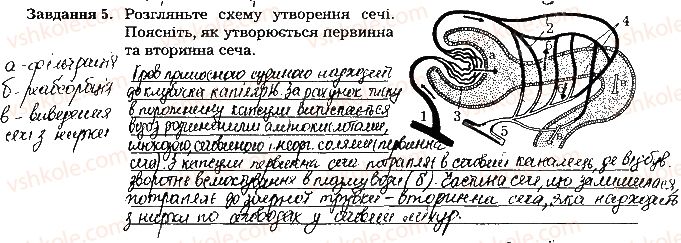 Завдання 5. Розгляньте схему утворення сечі.
Поясніть, як утворюється первинна
та вторинна сеча.
а - фільтрація
б - реабсорбція
в - виведення
сечі з нирки
Кров приносною судиною надходить
до клубочка капілярів. За рахунок тиску
в порожнину капсули випускається
вода з розчиненими амінокислотами,
глюкозою, сечовиною і неорг. солями (первинна
сеча). З капсули первинна сеча потрапляє в сечовий каналець, де відбув.
зворотнє всмоктування в плазму води (б). Частина сечі, що залишилася,
потрапляє до збірної трубки - вторинна сеча, яка надходить
з нирки по сечоводах у сечовий міхур.
1
2
3
4
5
vshkole.com